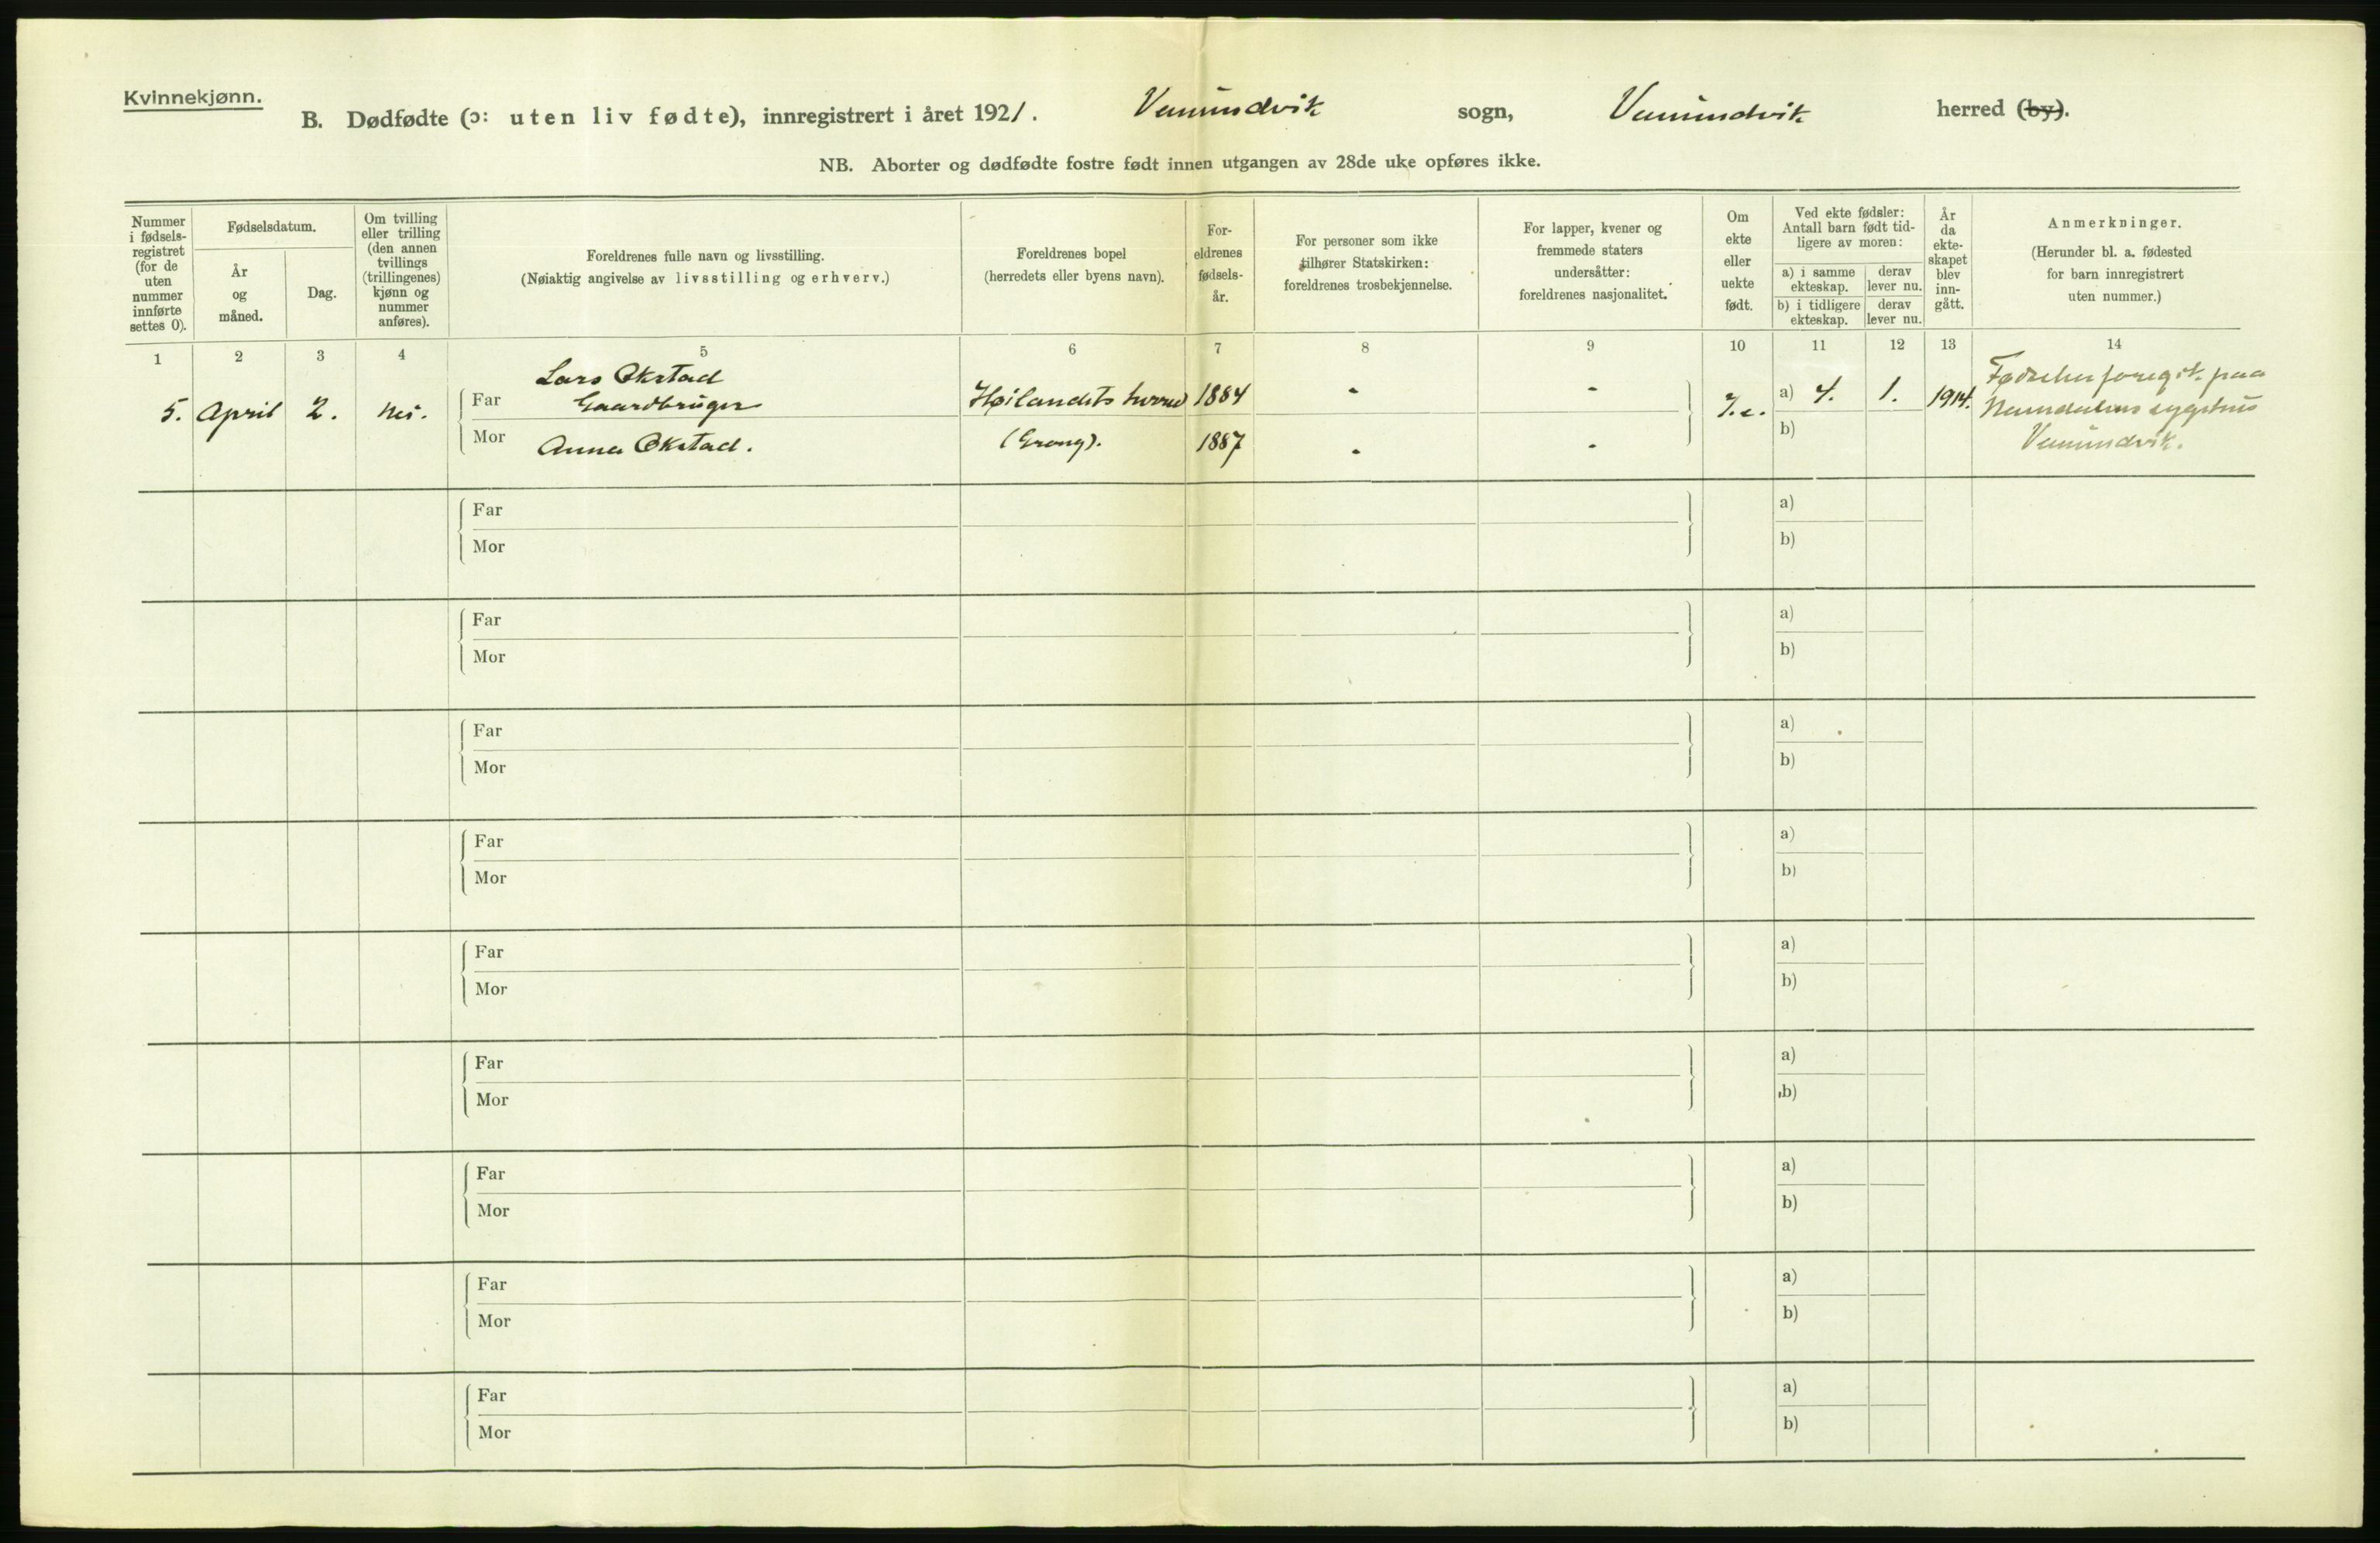 Kvinnekjønn.
B. Dødfødte (ɔ: uten liv fødte), innregistrert i året 1921. Vemundvik sogn, Vemundvik herred (by).
NB. Aborter og dødfødte fostre født innen utgangen av 28de uke opføres ikke.
Nummer i fødsels-registret (for de uten nummer innførte settes 0).
Fødselsdatum.
År og måned.
Dag.
Om tvilling eller trilling (den annen tvillings (trillingenes) kjønn og nummer anføres).
Foreldrenes fulle navn og livsstilling.
(Nøiaktig angivelse av livsstilling og erhverv.)
Foreldrenes bopel
(herredets eller byens navn).
For-eldrenes fødsels-år.
For personer som ikke tilhører Statskirken: foreldrenes trosbekjennelse.
For lapper, kvener og fremmede staters undersåtter: foreldrenes nasjonalitet.
Om ekte eller uekte født.
Ved ekte fødsler: Antall barn født tid-ligere av moren:
a) i samme ekteskap.
derav lever nu.
b) i tidligere ekteskap.
derav lever nu.
År da ekte-skapet blev inn-gått.
Anmerkninger.
(Herunder bl. a. fødested for barn innregistrert uten nummer.)
1 2 3 4 5 6 7 8 9 10 11 12 13 14
5. April 2. nei.
Lars Økstad
Far Gaardbruger Høilandets herred 1884 - -
Mor Anna Økstad. (Grong). 1887 - -
a) 4. 1. 1914.
b)
paa
Namdalens sygehus
Vemundvik.
Far a)
Mor b)
Far a)
Mor b)
Far a)
Mor b)
Far a)
Mor b)
Far a)
Mor b)
Far a)
Mor b)
Far a)
Mor b)
Far a)
Mor b)
Far a)
Mor b)